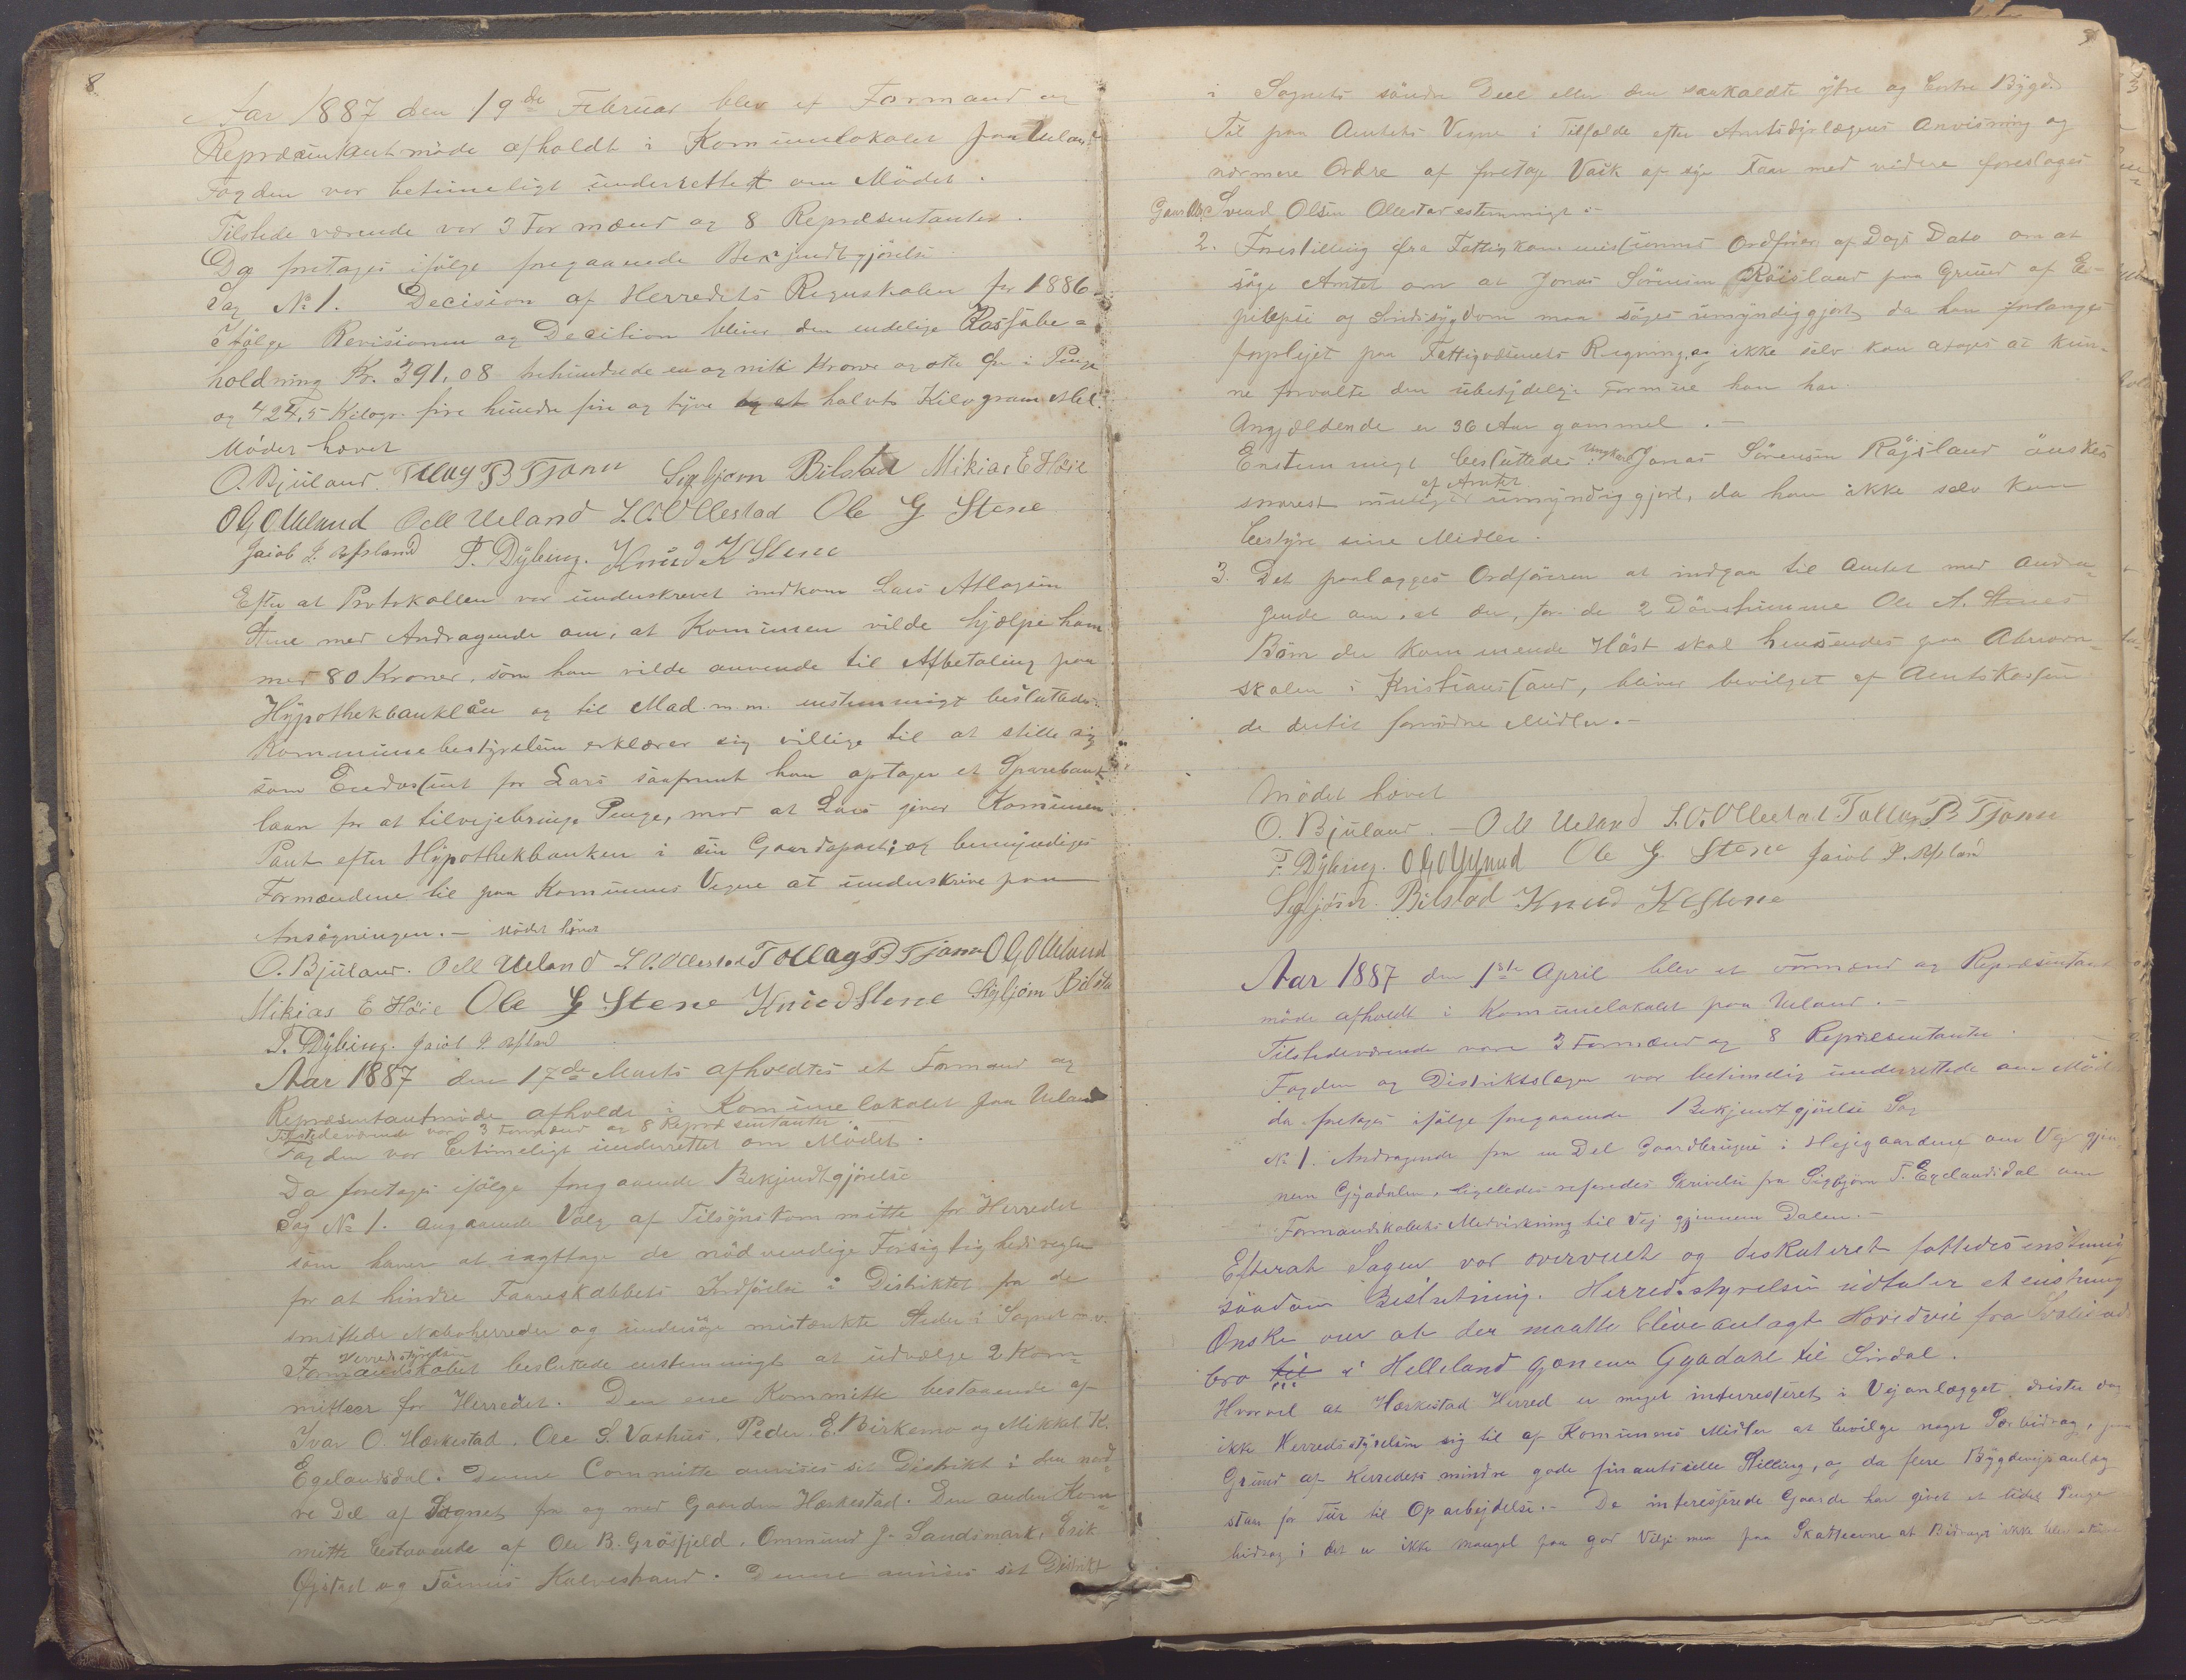 8
Aar 1887 den 19de Februar blev et Formand og
Repræsentantmöde afholdt i Kommunelokalet paa Ueland
Fogden var betimeligt underrettet om Mödet.
Tilstede værende var 3 Formænd og 8 Repræsentanter.
Da foretages ifölge foregaaende Bekjendtgjörelse
Sag No 1. Decision af Herredets Regnskaber for 1886.
Ifölge Revisionen og Decition bliver den endelige Kassabe-
holdning Kr. 391,08 trehundrede en og niti Kroner og otte Öre i Penge
og 424,5 Kilogr. fire hundre fire og tyve og et halvt Kilogram Mel.
Mödet hævet
O. Bjuland. Tollag B Tjørn Sigbjørn Bilstad Mikias E Høie
O G Ueland O M Ueland L. O. Ollestad Ole G Stene
Jacob P. Refsland T. Dybing. Knud K Stene
Efter at Protokollen var underskrevet indkom Lars Atlagsen
Stene med Andragende om, at Kommunen vilde hjælpe ham
med 80 Kroner, som han vilde anvende til Afbetaling paa
Hypothekbanklån og til Mad m.m. enstemmigt beslutedes:
Kommunebestyrelsen erklærer sig villige til at stille sig
som Endossent for Lars saafremt han optager et Sparebank-
laan for at tilvejebringe Penge, mod at Lars giver Kommunen
Pant efter Hypothekbanken i sin Gaardspart; og bemyndiges
Formændene til paa Kommunens Vegne at underskrive paa
Ansögningen. — Mödet hævet
O. Bjuland. O M Ueland L. O. Ollestad Tollag B Tjørn O G Ueland
Mikias E Høie Ole G Stene Knud Stene Sigbjørn Bilstad
T. Dybing. Jacob P. Refsland
Aar 1887 den 17de Marts afholdtes et Formand og
Repræsentantmöde afholdt i Kommunelokalet paa Ueland
Tilstedeværende var 3 Formænd og 8 Repræsentanter
Fogden var betimeligt underrettet om Mödet.
Da foretages ifölge foregaaende Bekjendtgjörelse
Sag No 1. angaaende Valg af Tilsynskommitte for Herredet
som haver at iagttage de nödvendige Forsigtighedsregler
for at hindre Faareskabbets Indförelse i Distriktet fra de
smittede Naboherreder og undersöge mistænkte Steder i Sognet o.v.
Herredsstyrelsen
Formandskabet beslutede enstemmigt at udvælge 2 Kom-
mitteer for Herredet. Den ene Kommitte bestaaende af
Ivar O. Hæskestad, Ole S. Vashus, Peder E. Birkemo og Mikkel K.
Egelandsdal. Denne Committe anvises sit Distrikt i den nord-
re Del af Sognet fra og med Gaarden Hæskestad. Den anden Kom-
mitte bestaaende af Ole B. Grösfjeld, Ommund J. Sandsmark, Erik
Øjstad og Tönnes Kalvestrand. Denne anvises sit Distrikt
9
i Sognets söndre Deel eller den saakaldte ytre og Bygd
Til paa Amtets Vegne i Tilfælde efter Amtsdyrlægens Anvisning og
nærmere Ordre at foretage Vask af syge Faar med videre foreslages
Gaardb. Svend Olsen Ollestad enstemmigt. —
2. Forestilling fra Fattigkommissionens Ordförer af Dags Dato om at
söge Amtet om at Jonas Sörensen Röisland paa Grund af E-
pilepsi og Sindssygdom maa söges umyndiggjort, da han forlanges
forplejet paa Fattigvæsenets Regning, og ikke selv kan at kun-
ne forvalte den ubetydelige Formue han har.
Angjældende er 36 Aar gammel. —
Enstemmigt besluttedes: Ungkarl Jonas Sörensen Röjsland önskes
snarest muligt af Amtet umyndiggjort, da han ikke selv kan
bestyre sine Midler.
3. Det paalægges Ordföreren at indgaa til Amtet med Andra-
gende om, at der, for de 2 Dövstumme Ole A. Stenes
Börn der kommende Höst skal hensendes paa Abnorm-
skolen i Kristiansand, bliver bevilget af Amtskassen
de dertil fornödne Midler. —
Mödet hævet
O. Bjuland. — O M Ueland L. O. Ollestad Tollag B Tjørn
T. Dybing. O G Ueland Ole G. Stene Jacob P. Refsland
Sigbjørn Bilstad Knud K Stene
Aar 1887 den 1ste April blev et Formænd og Repræsentant
möde afholdt i Kommunelokalet paa Ueland. —
Tilstedeværende vare 3 Formænd og 8 Repræsentanter.
Fogden og Distriktslægen var betimelig underrettede om Mödet
da foretages ifölge foregaaende Bekjendtgjörelse Sag
No 1. Andragende fra en Del Gaardbrugere i Hejegaardene om Vej gjen-
nem Gyadalen, ligeledes refereredes Skrivelse fra Sigbjørn T. Egelandsdal om
Formandskabets Medvirkning til Vej gjennem Dalen. —
Efterat Sagen var overveiet og diskuteret fattedes enstemmig
saadan Beslutning. Herredsstyrelsen udtaler et enstemmig
Ønske om at der maatte blive anlagt Hovedvei fra
bro til i Helleland gjennem Gyadahl til Sirdal.
Hvorvel at Hæskestad Herred er meget interesseret i Vejanlægget drister dog
ikke Herredsstyrelsen sig til af Kommunens Midler at bevilge noget Særbidrag, paa
Grund af Herredets mindre gode finantsielle Stilling, og da flere Bygdevejsanlæg
staar for Tur til Oparbejdelse. — De interesserede Gaarde har givet et lidet Penge
bidrag i det er ikke mangel paa god Vilje men paa Skatteevne at Bidraget ikke blev större